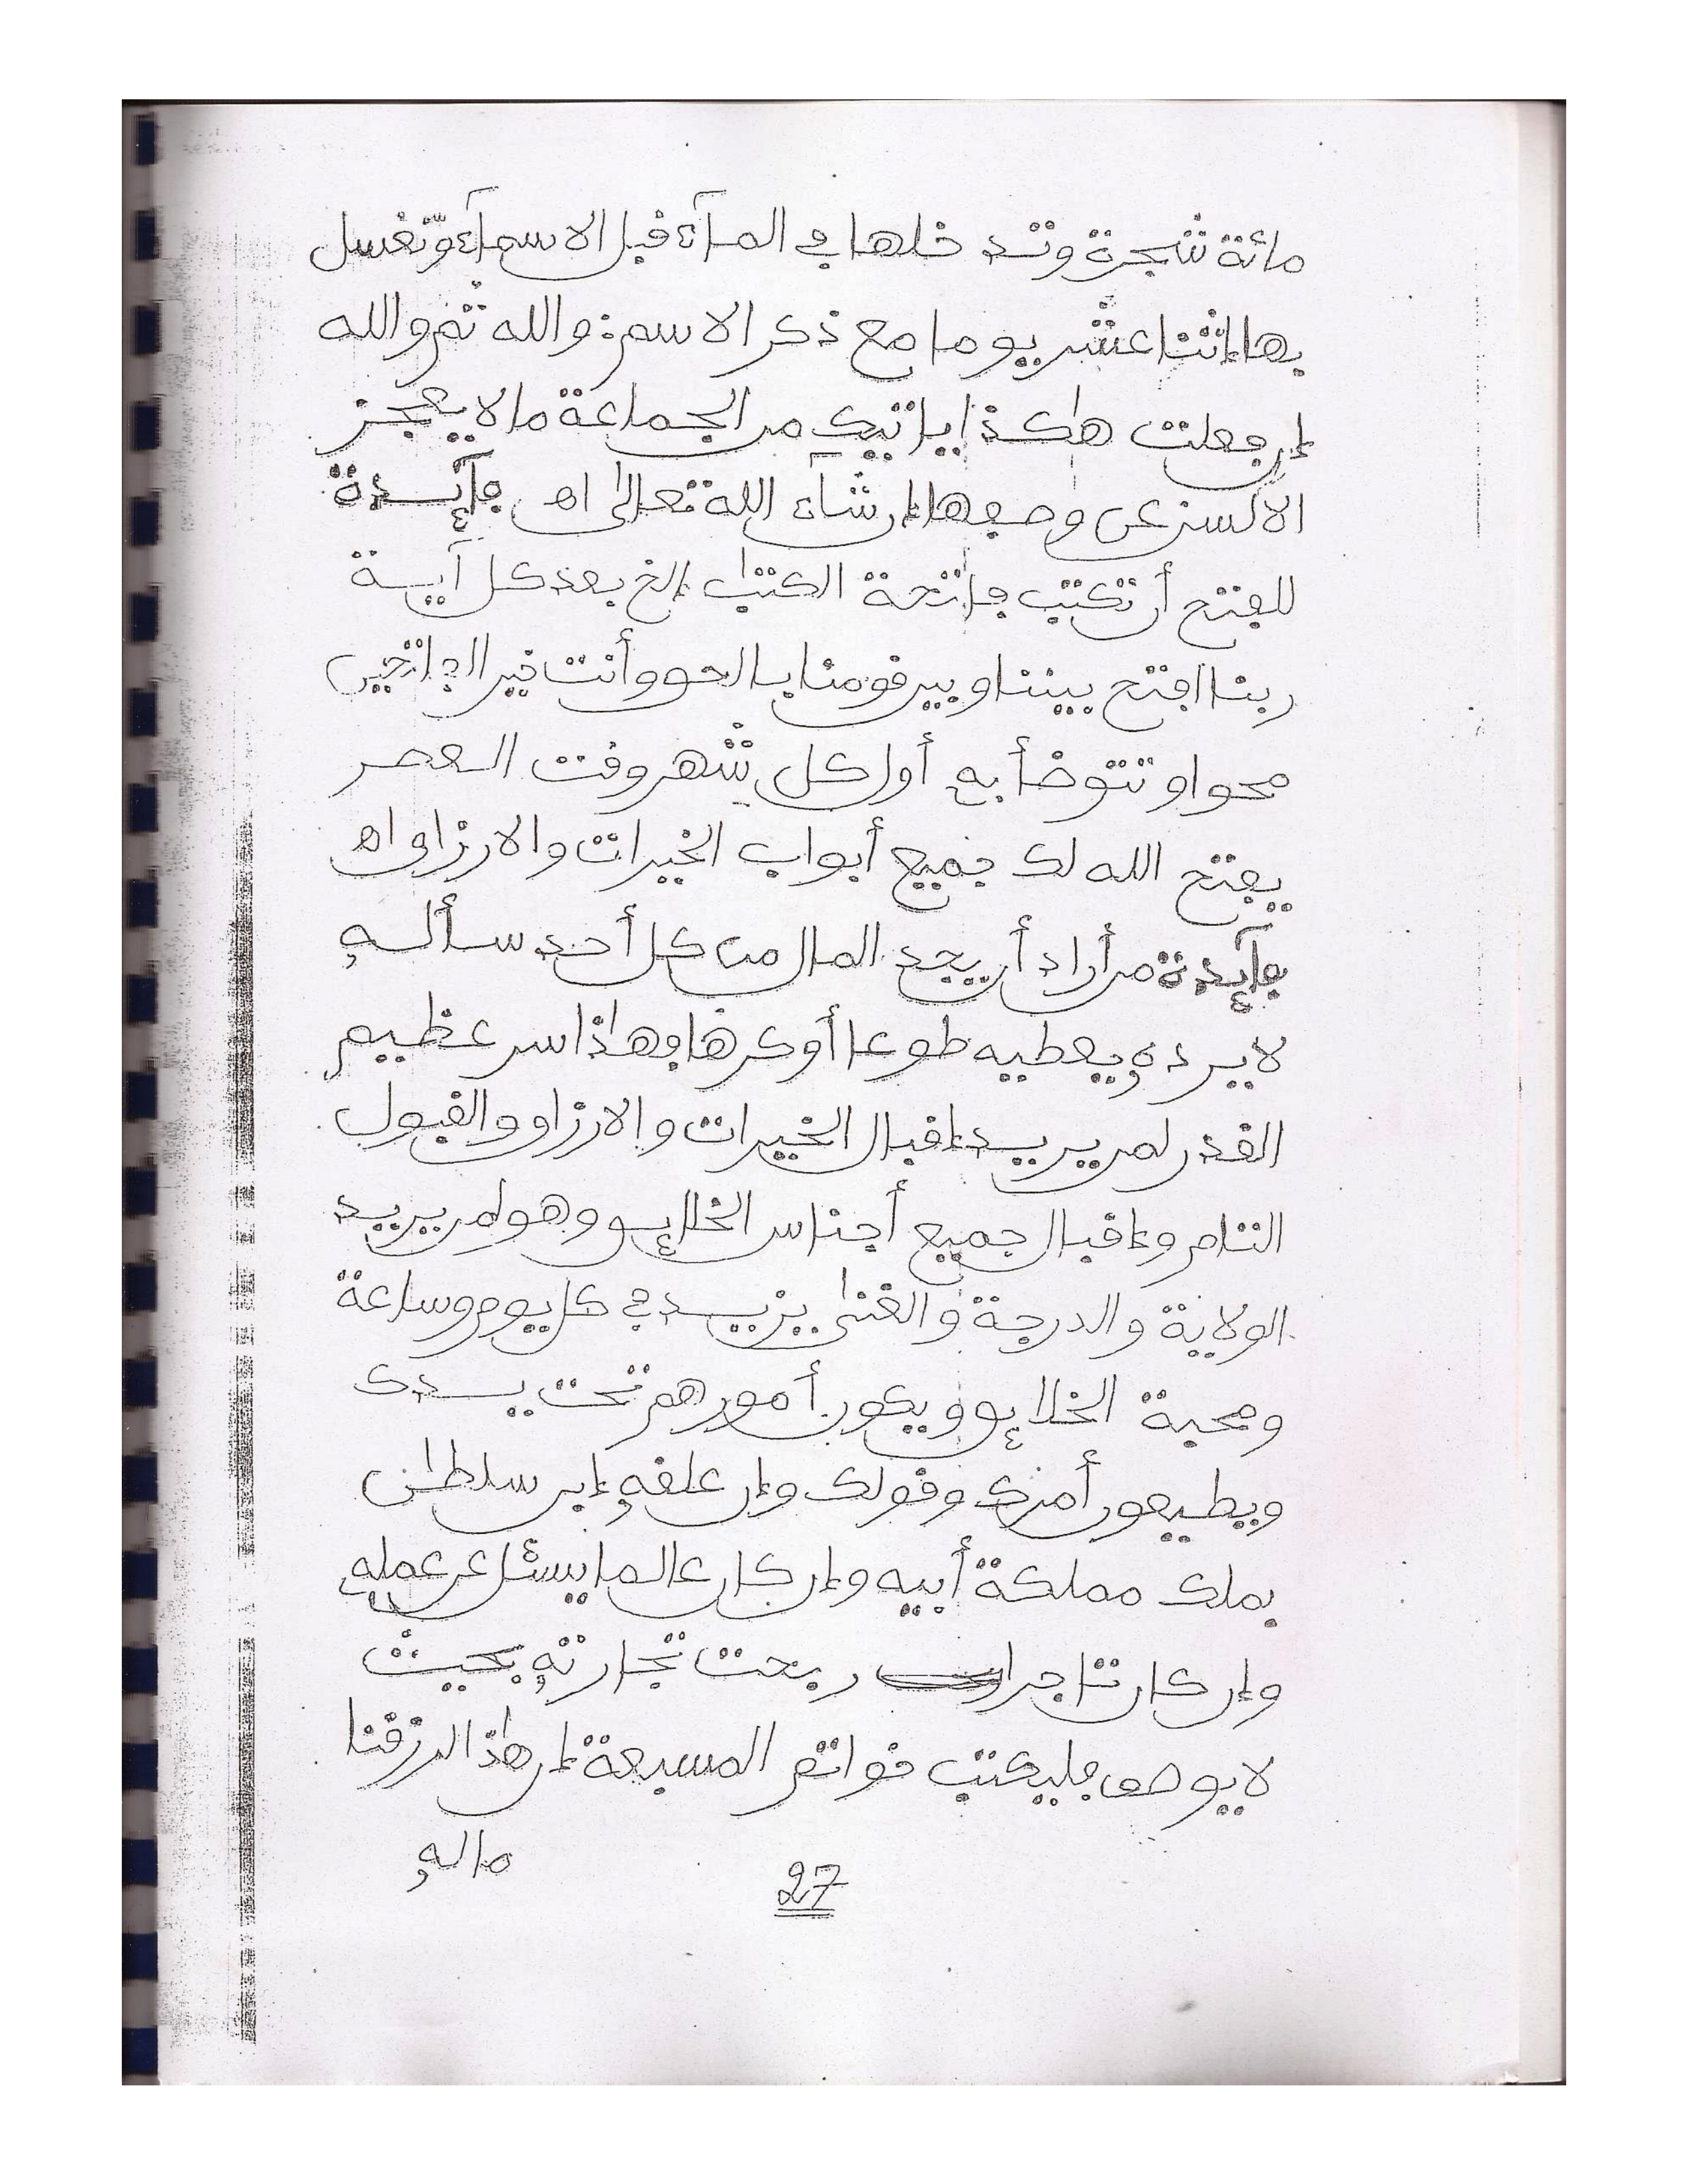 مائة شجرة وتدخلها في المآء قبل الاسمآء وتغسل
بها إثنا عشر يوما مع ذكر الاسم: والله ثم والله
إن فعلت هٰكذا يأتيك من الجماعة ما لا يعجز
الالسن عن وصفها إن شآء الله تعالى اه فآئدة
للفتح أن تكتب فاتحة الكتٰب إلخ بعد كل آيـة
ربنا افتح بيننا وبين قومنا بالحق وأنت خير الفاتحين
محوا وتتوضأ به أول كل شهر وقت العصر
يفتح الله لك جميع أبواب الخيرات والارزاق اه
فآئدة من أراد أن يجد المال من كل أحد سألـه
لا يرده ويعطيه طوعا أو كرها وهٰذا سر عظيم
القدر لمن يريد إقبال الخيرات والارزاق والقبول
التام وإقبال جميع أجناس الخلائق وهو لمن يريد
الولاية والدرجة والغنى يزيد في كل يوم وساعة
ومحبة الخلائق ويكون أمورهم تحت يـدك
ويطيعون أمرك وقولك وإن علقه إبن سلطٰن
يملك مملكة أبيه وإن كان عالما يسئل عن عمله
وإن كان تاجرا ربحت تجارته بحيث
لا يوصف فليكتب خواتم المسبعة إن هٰذا لرزقنا
ماله
27